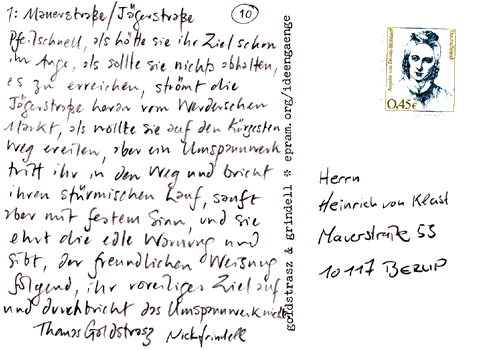 1: Mauerstraße/Jägerstraße
10
Pfeilschnell, als hätte sie ihr Ziel schon
im Auge, als sollte sie nichts abhalten,
es zu erreichen, strömt die
Jägerstraße heran vom Werderschen
Markt, als wollte sie auf den kürzesten
Weg ereilen, aber ein Umspannwerk
tritt ihr in den Weg und bricht
ihren stürmischen Lauf, sanft
aber mit festem Sinn, und sie
ehrt die edle Warnung und
gibt, der freundlichen Weisung
folgend, ihr voreiliges Ziel auf
und durchbricht das Umspannwerk nicht
Thomas Goldstrasz Nick Grindell
goldstrasz & grindell * epram.org/ideengaenge
Deutschland
0,45€
Herrn
Heinrich von Kleist
Mauerstraße 53
10117 BERLIN